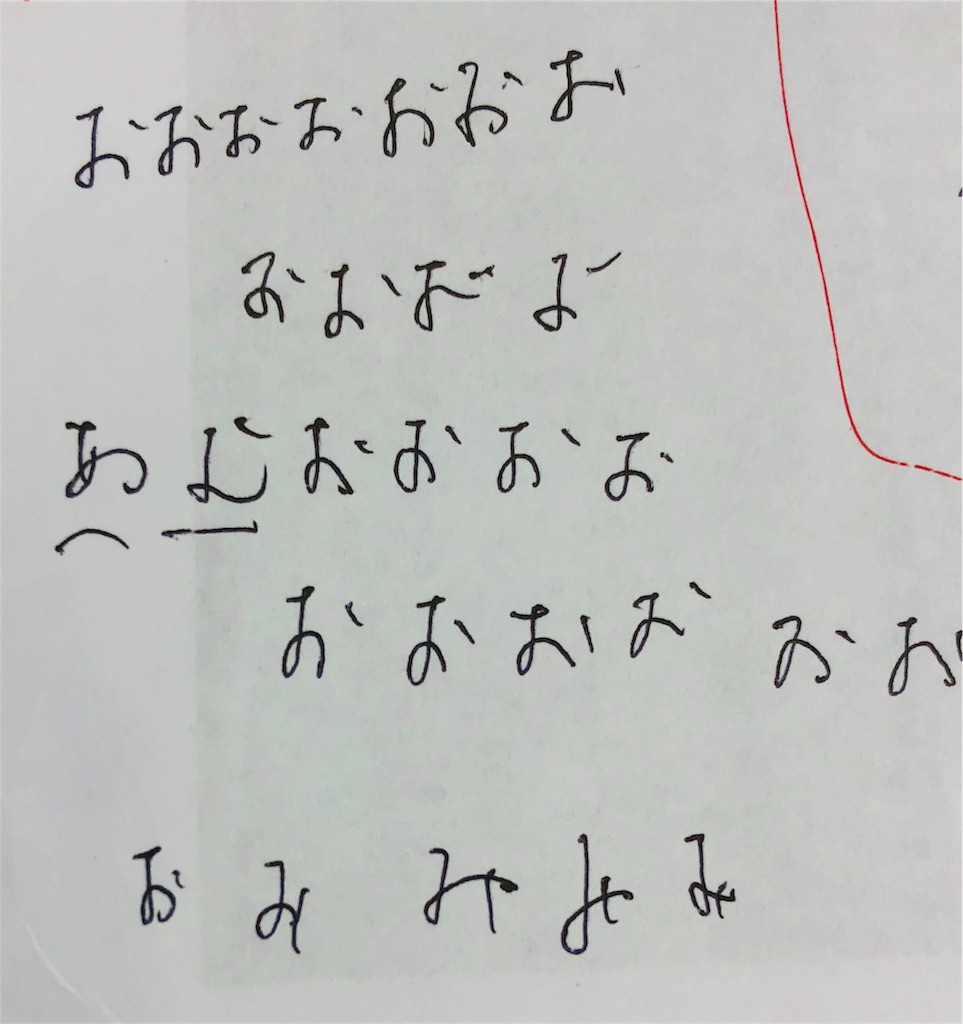 おおおおおおお
おおおお
あむおおおお
おおおおおお
おみみみみ